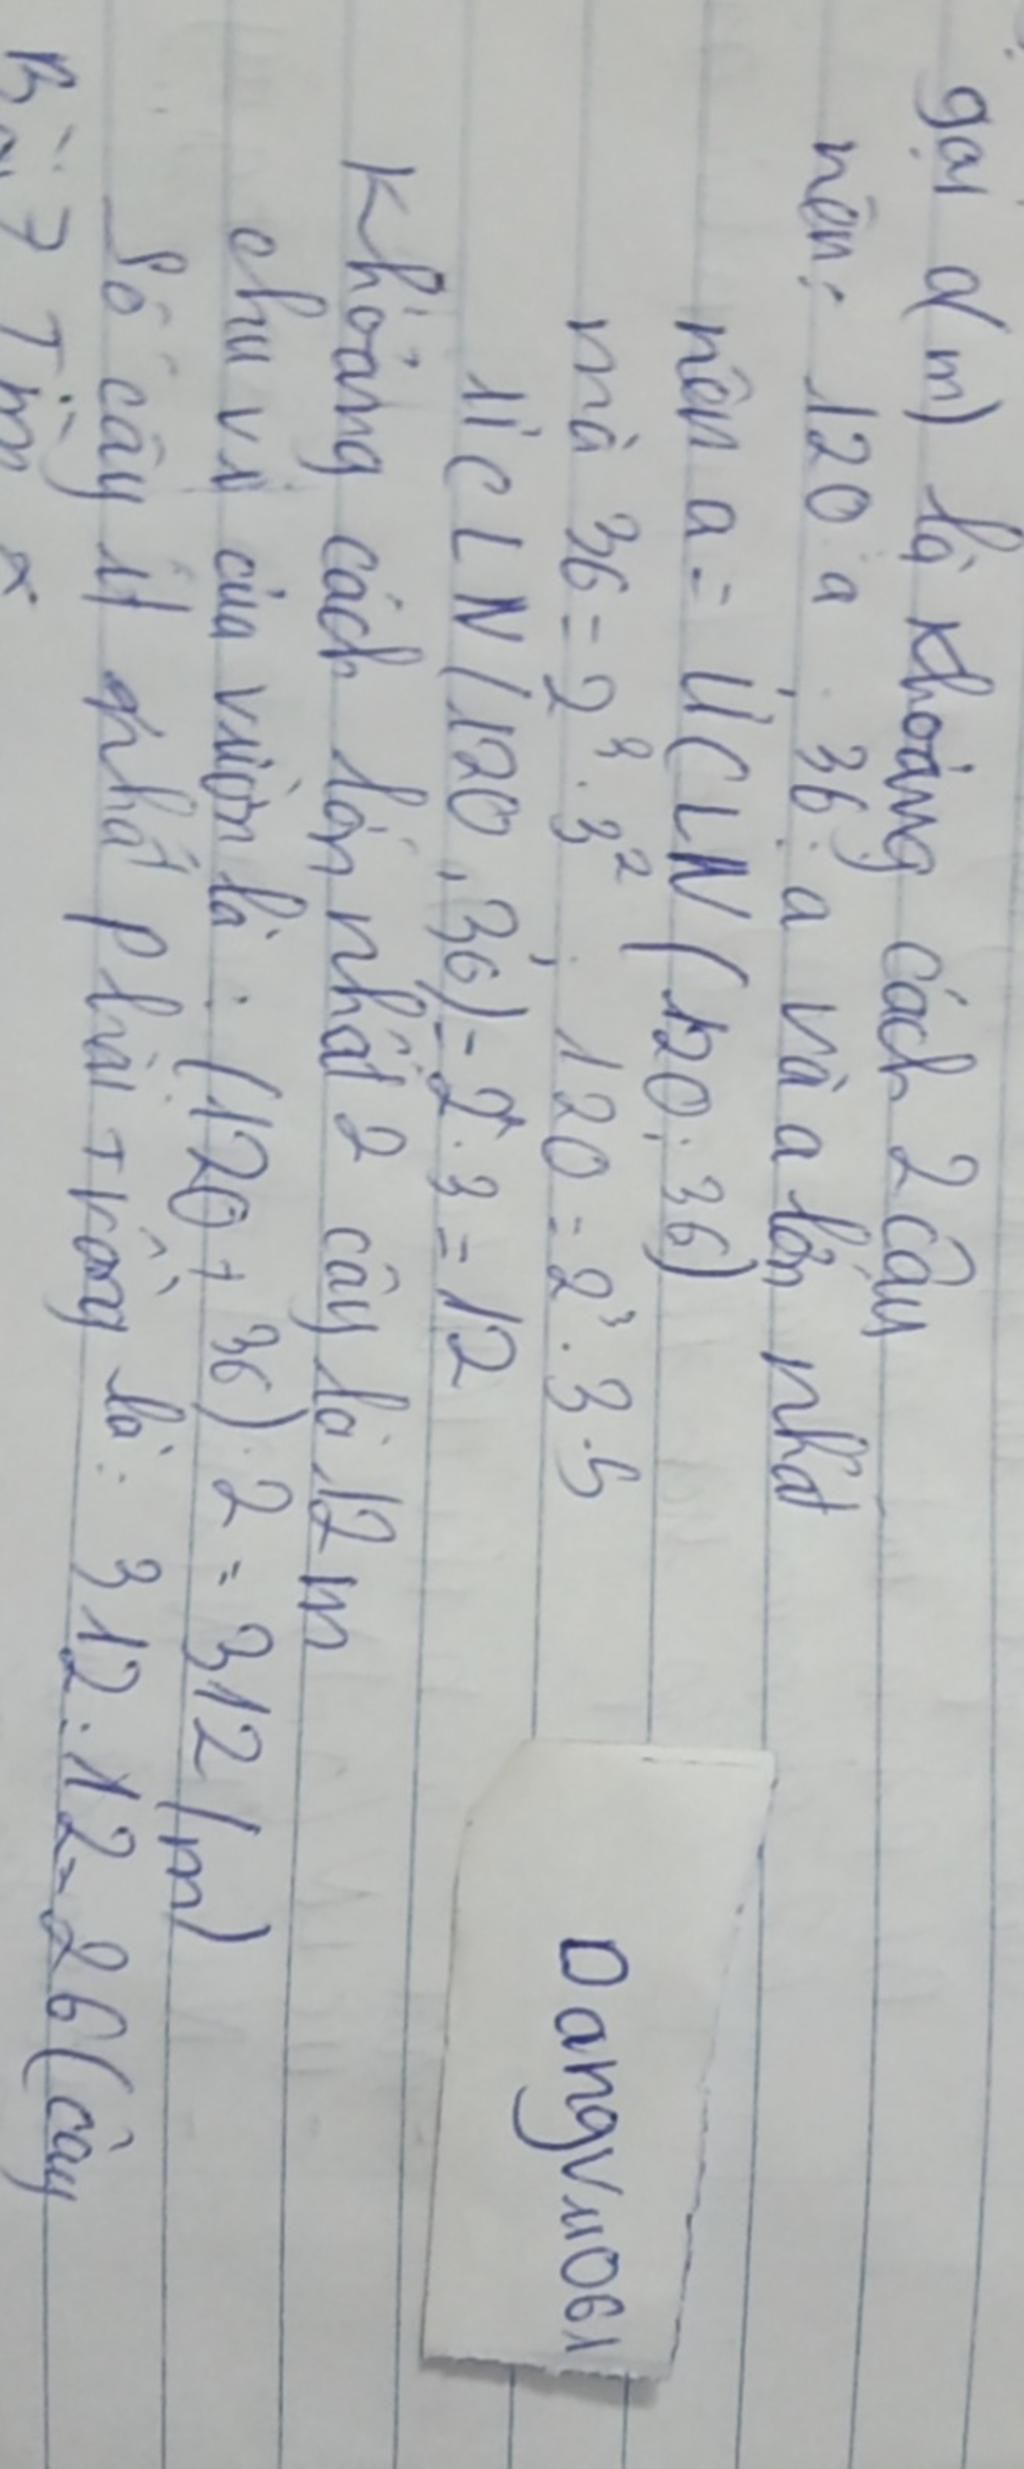 gọi a(m) là khoảng cách 2 cây
nên: 120 ⋮ a, 36 ⋮ a và a lớn nhất
nên a = ƯCLN (120; 36)
mà 36 = 2³ . 3² ; 120 = 2³ . 3 . 5
ƯCLN (120, 36) = 2² . 3 = 12
Khoảng cách lớn nhất 2 cây là 12 m
chu vi của vườn là : (120 + 36) . 2 = 312 (m)
Số cây ít nhất phải trồng là : 312 : 12 = 26 (cây
Bài 7 Tìm x
Dangvu061